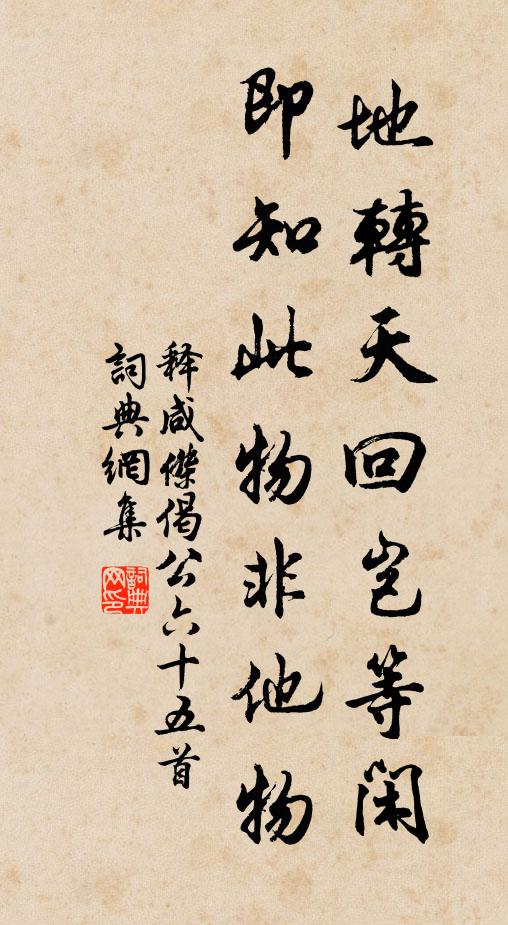 地轉天回豈等閑
即知此物非他物
释咸傑偈公六十五首
詞典網集
詞典网印